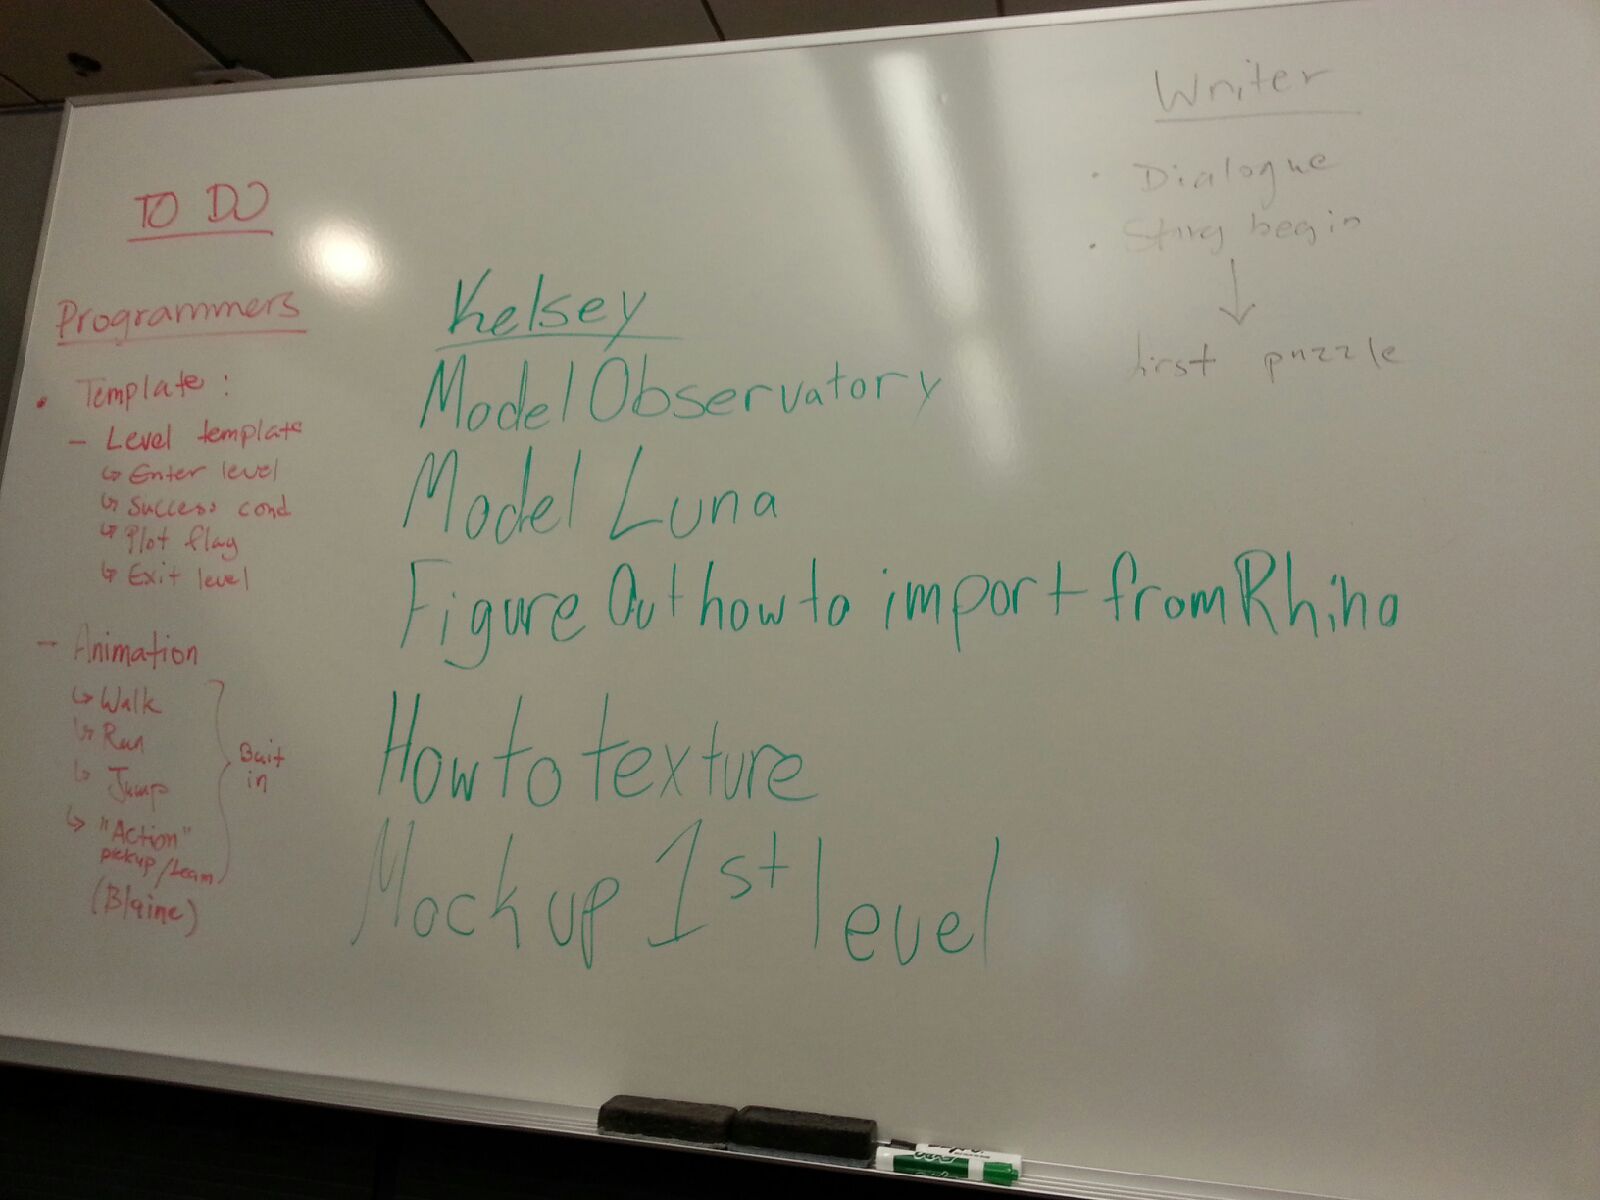 TO DO
Programmers
• Template:
- Level template
↳ Enter level
↳ Success cond
↳ Plot flag
↳ Exit level
- Animation
↳ Walk
↳ Run
↳ Jump
↳ "Action"
pickup/
(Blaine)
Buit
in
Kelsey
Model Observatory
Model Luna
Figure Out how to import from Rhino
How to texture
Mock up 1st level
Writer
• Dialogue
• Story begin
↓
first puzzle